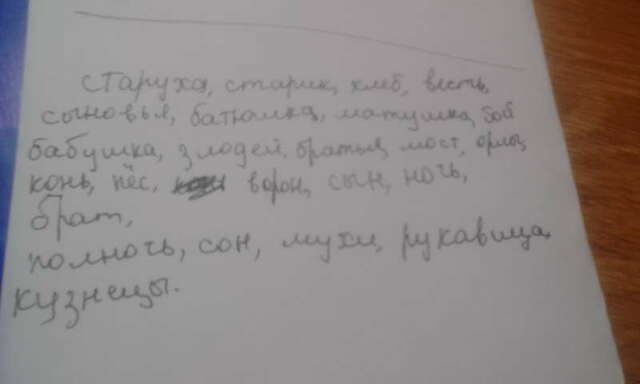 старуха, старик, хлеб, весть,
сыновья, батюшка, матушка, бой
бабушка, злодей, братья, мост, орлы,
конь, пёс, ворон, сын, ночь,
брат,
полночь, сон, мухи, рукавица,
кузнецы.